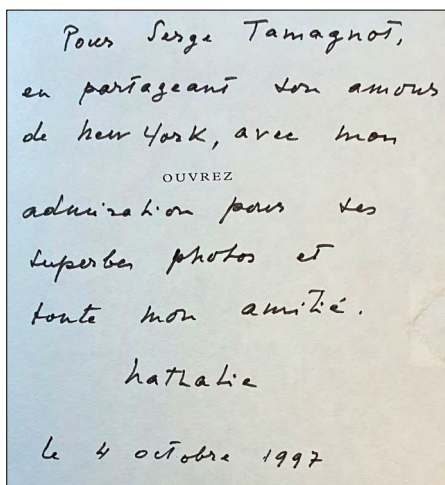 Pour Serge Tamagnot,
en partageant son amour
de New York, avec mon
OUVREZ
admiration pour ses
superbes photos et
toute mon amitié.
Nathalie
le 4 octobre 1997